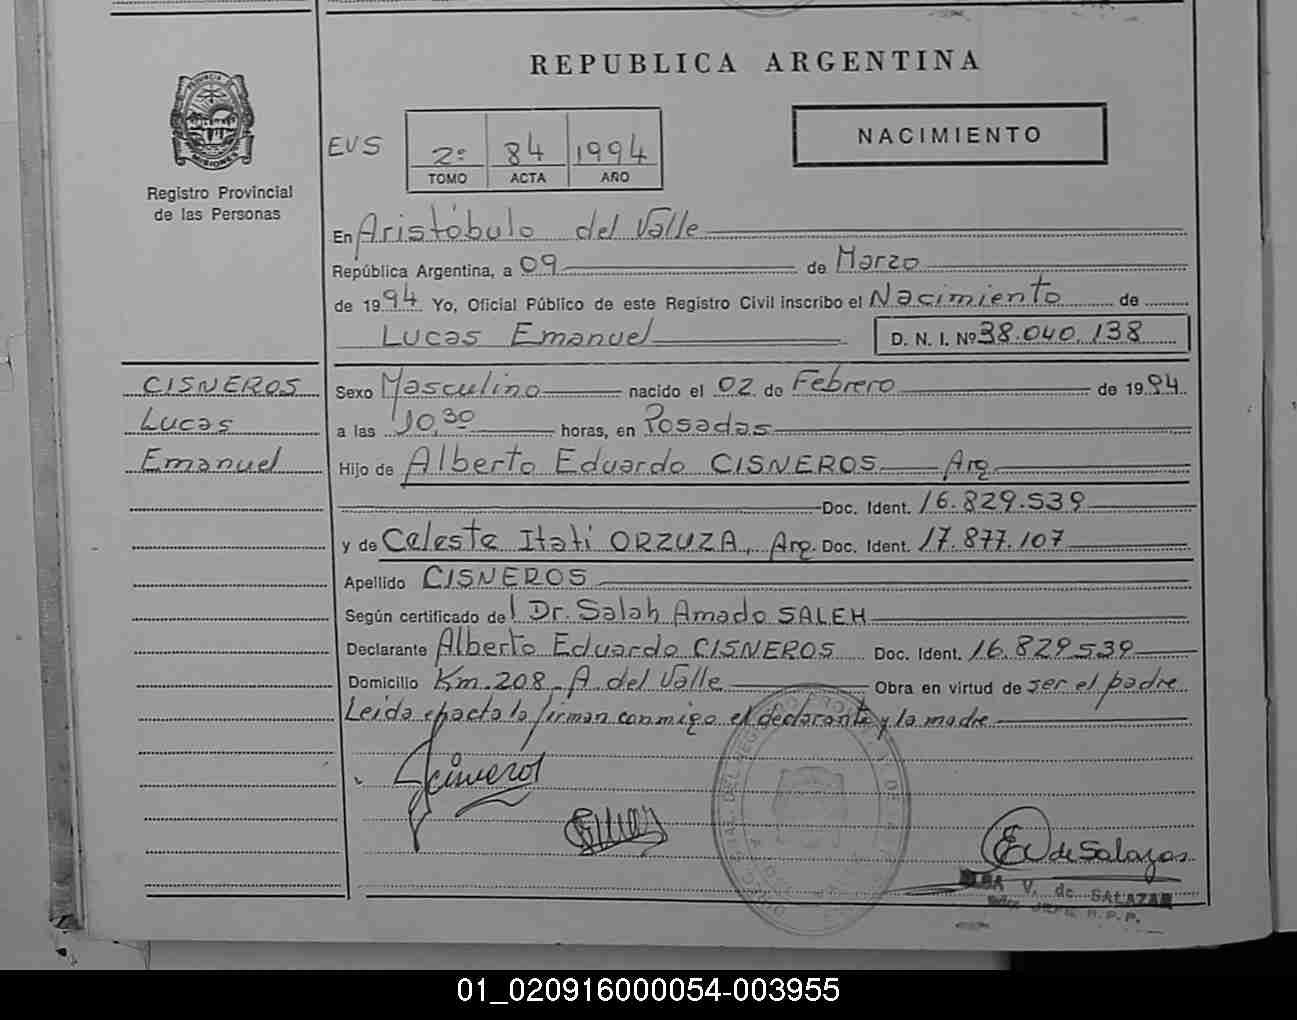 REPUBLICA ARGENTINA
PROVINCIA DE
MISIONES
Registro Provincial
de las Personas
EVS
2º 84 1994
TOMO ACTA AÑO
NACIMIENTO
En Aristóbulo del Valle
República Argentina, a 09 de Marzo
de 1994 Yo, Oficial Público de este Registro Civil inscribo el Nacimiento de
Lucas Emanuel D. N. I. Nº 38.040.138
CISNEROS
Lucas
Emanuel
Sexo Masculino nacido el 02 de Febrero de 1994
a las 10,30 horas, en Posadas
Hijo de Alberto Eduardo CISNEROS Arg
Doc. Ident. 16.829.539
y de Celeste Itati ORZUZA, Arg. Doc. Ident. 17.877.107
Apellido CISNEROS
Según certificado del Dr. Salah Amado SALEH
Declarante Alberto Eduardo CISNEROS Doc. Ident. 16.829539
Domicilio Km.208 A. del Valle Obra en virtud de ser el padre
Leída el acta la firman conmigo el declarante y la madre
Ev de Salazar
V. de SALAZAR
R.P.P.
01_020916000054-003955